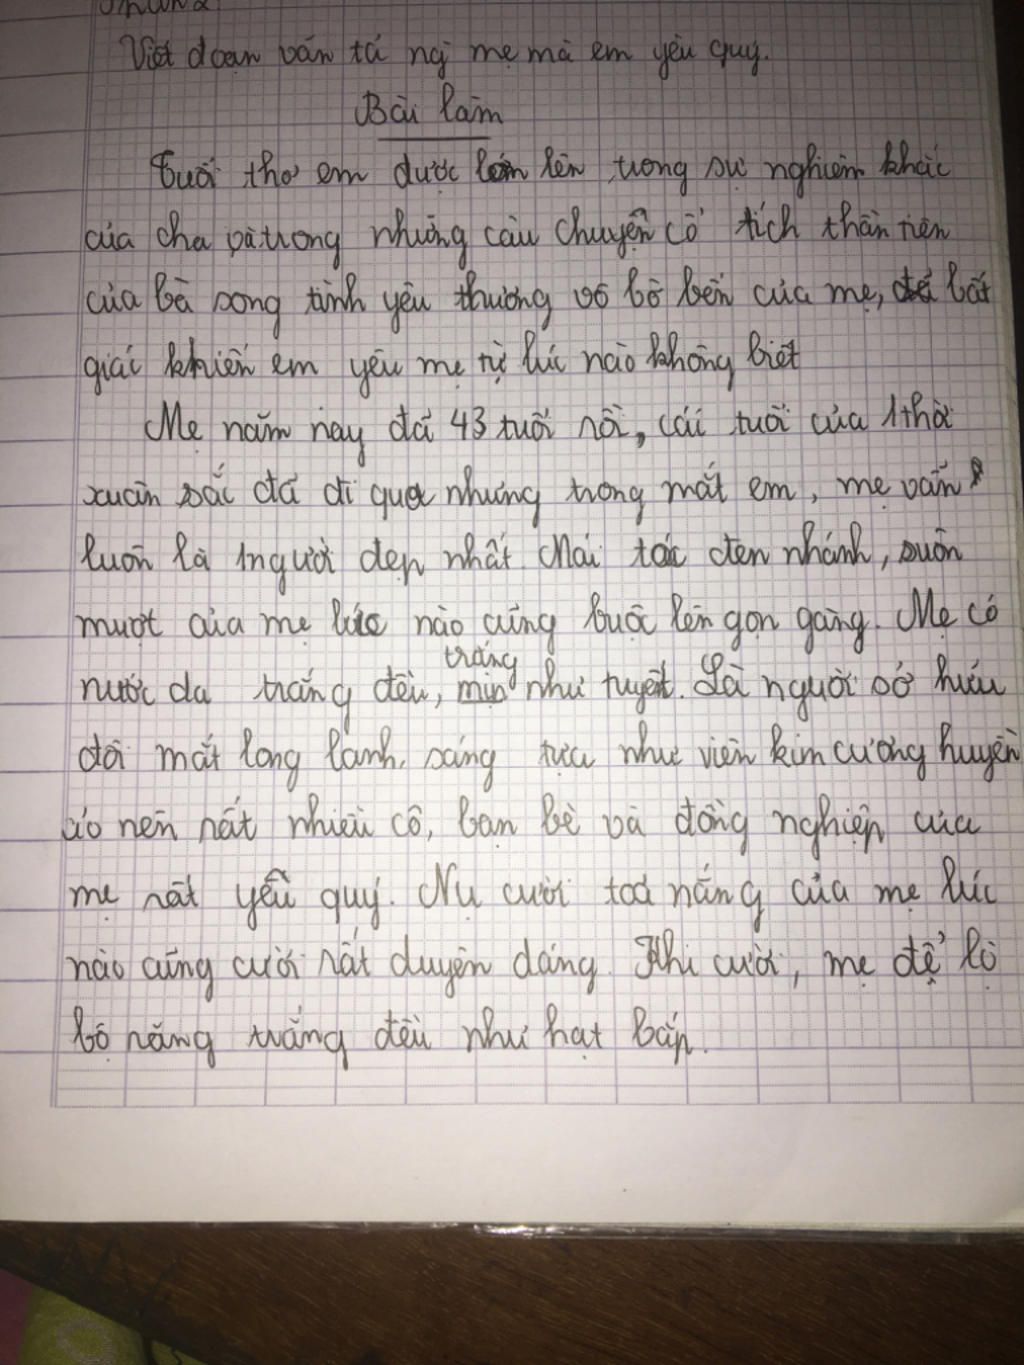 Viết đoạn văn tả ng mẹ mà em yêu quý.
Bài làm
Tuổi thơ em được lớn lên trong sự nghiêm khắc
của cha và trong những câu chuyện cổ tích thần tiên
của bà song tình yêu thương vô bờ bến của mẹ, đã bất
giác khiến em yêu mẹ tự lúc nào không biết
Mẹ năm nay đã 43 tuổi rồi, cái tuổi của 1 thời
xuân sắc đã đi qua nhưng trong mắt em, mẹ vẫn
luôn là 1 người đẹp nhất. Mái tóc đen nhánh, suôn
mượt của mẹ lúc nào cũng buộc lên gọn gàng. Mẹ có
nước da trắng đều, trắng như tuyết. Là người sở hữu
đôi mắt long lanh, sáng tựa như viên kim cương huyền
ảo nên rất nhiều cô, bạn bè và đồng nghiệp của
mẹ rất yêu quý. Nụ cười toả nắng của mẹ lúc
nào cũng cười rất duyên dáng. Khi cười, mẹ để lộ
bộ răng trắng đều như hạt bắp.